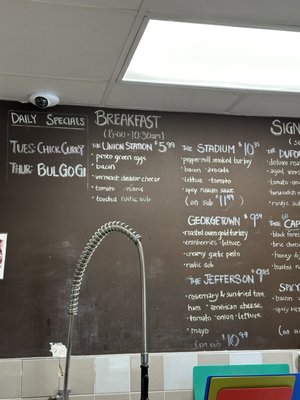 DAILY SPECIALS
TUES: CHICK CURRY
THUR: BULGOGI
BREAKFAST
(8:00 - 10:30am)
THE UNION STATION $5.99
• pesto green eggs
• bacon
• vermont cheddar cheese
• tomato • onions
• toasted rustic sub
• THE STADIUM $10.35
• peppermill smoked turkey
• bacon • avocado
• lettuce • tomato
• spicy russian sauce
(on sub $11.99)
GEORGETOWN $9.59
• roasted oven gold turkey
• cranberries • lettuce
• creamy gelato pesto
• rustic sub
• THE JEFFERSON $9.85
• rosemary & sundried tom
ham • american cheese
• tomato • onion • lettuce
• mayo
(on sub $10.99)
SIGN
THE
• aged
• rustic
• THE CAP
• black forest
• honey
SPICY
• bacon
• spicy